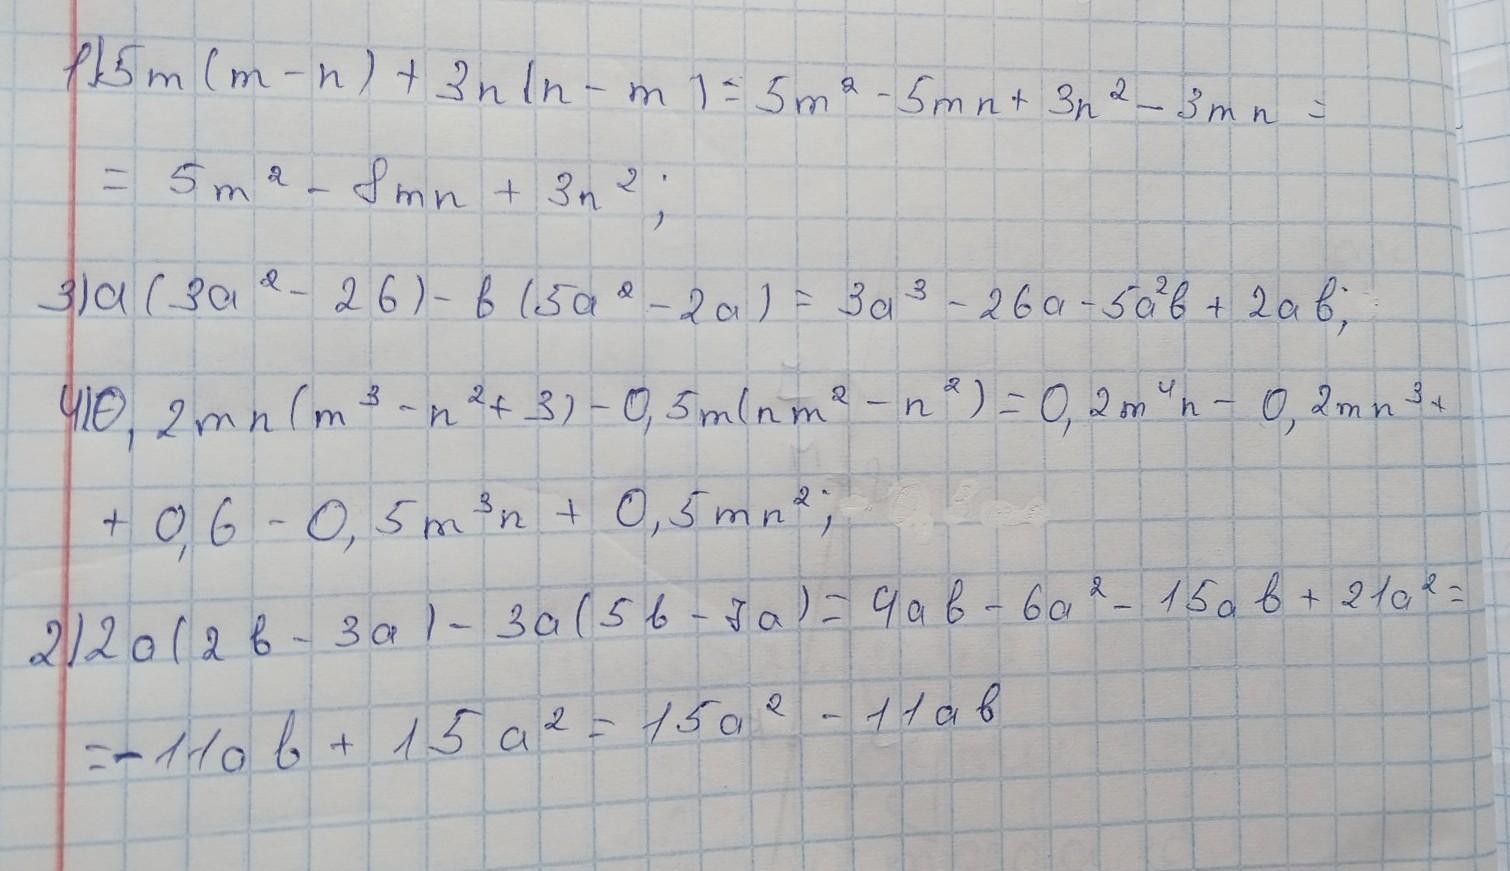 1) 5m(m-n)+3n(n-m)=5m²-5mn+3n²-3mn=
= 5m² - 8mn + 3n²;
3) a(3a²-2b)-b(5a²-2a)=3a³-2ba-5a²b+2ab;
4) 0,2mn(m³-n²+3)-0,5m(nm²-n²)=0,2m⁴n-0,2mn³+
+ 0,6 - 0,5m³n + 0,5mn²;
2) 2a(2b-3a)-3a(5b-7a)=4ab-6a²-15ab+21a²=
=-11ab+15a²=15a²-11ab